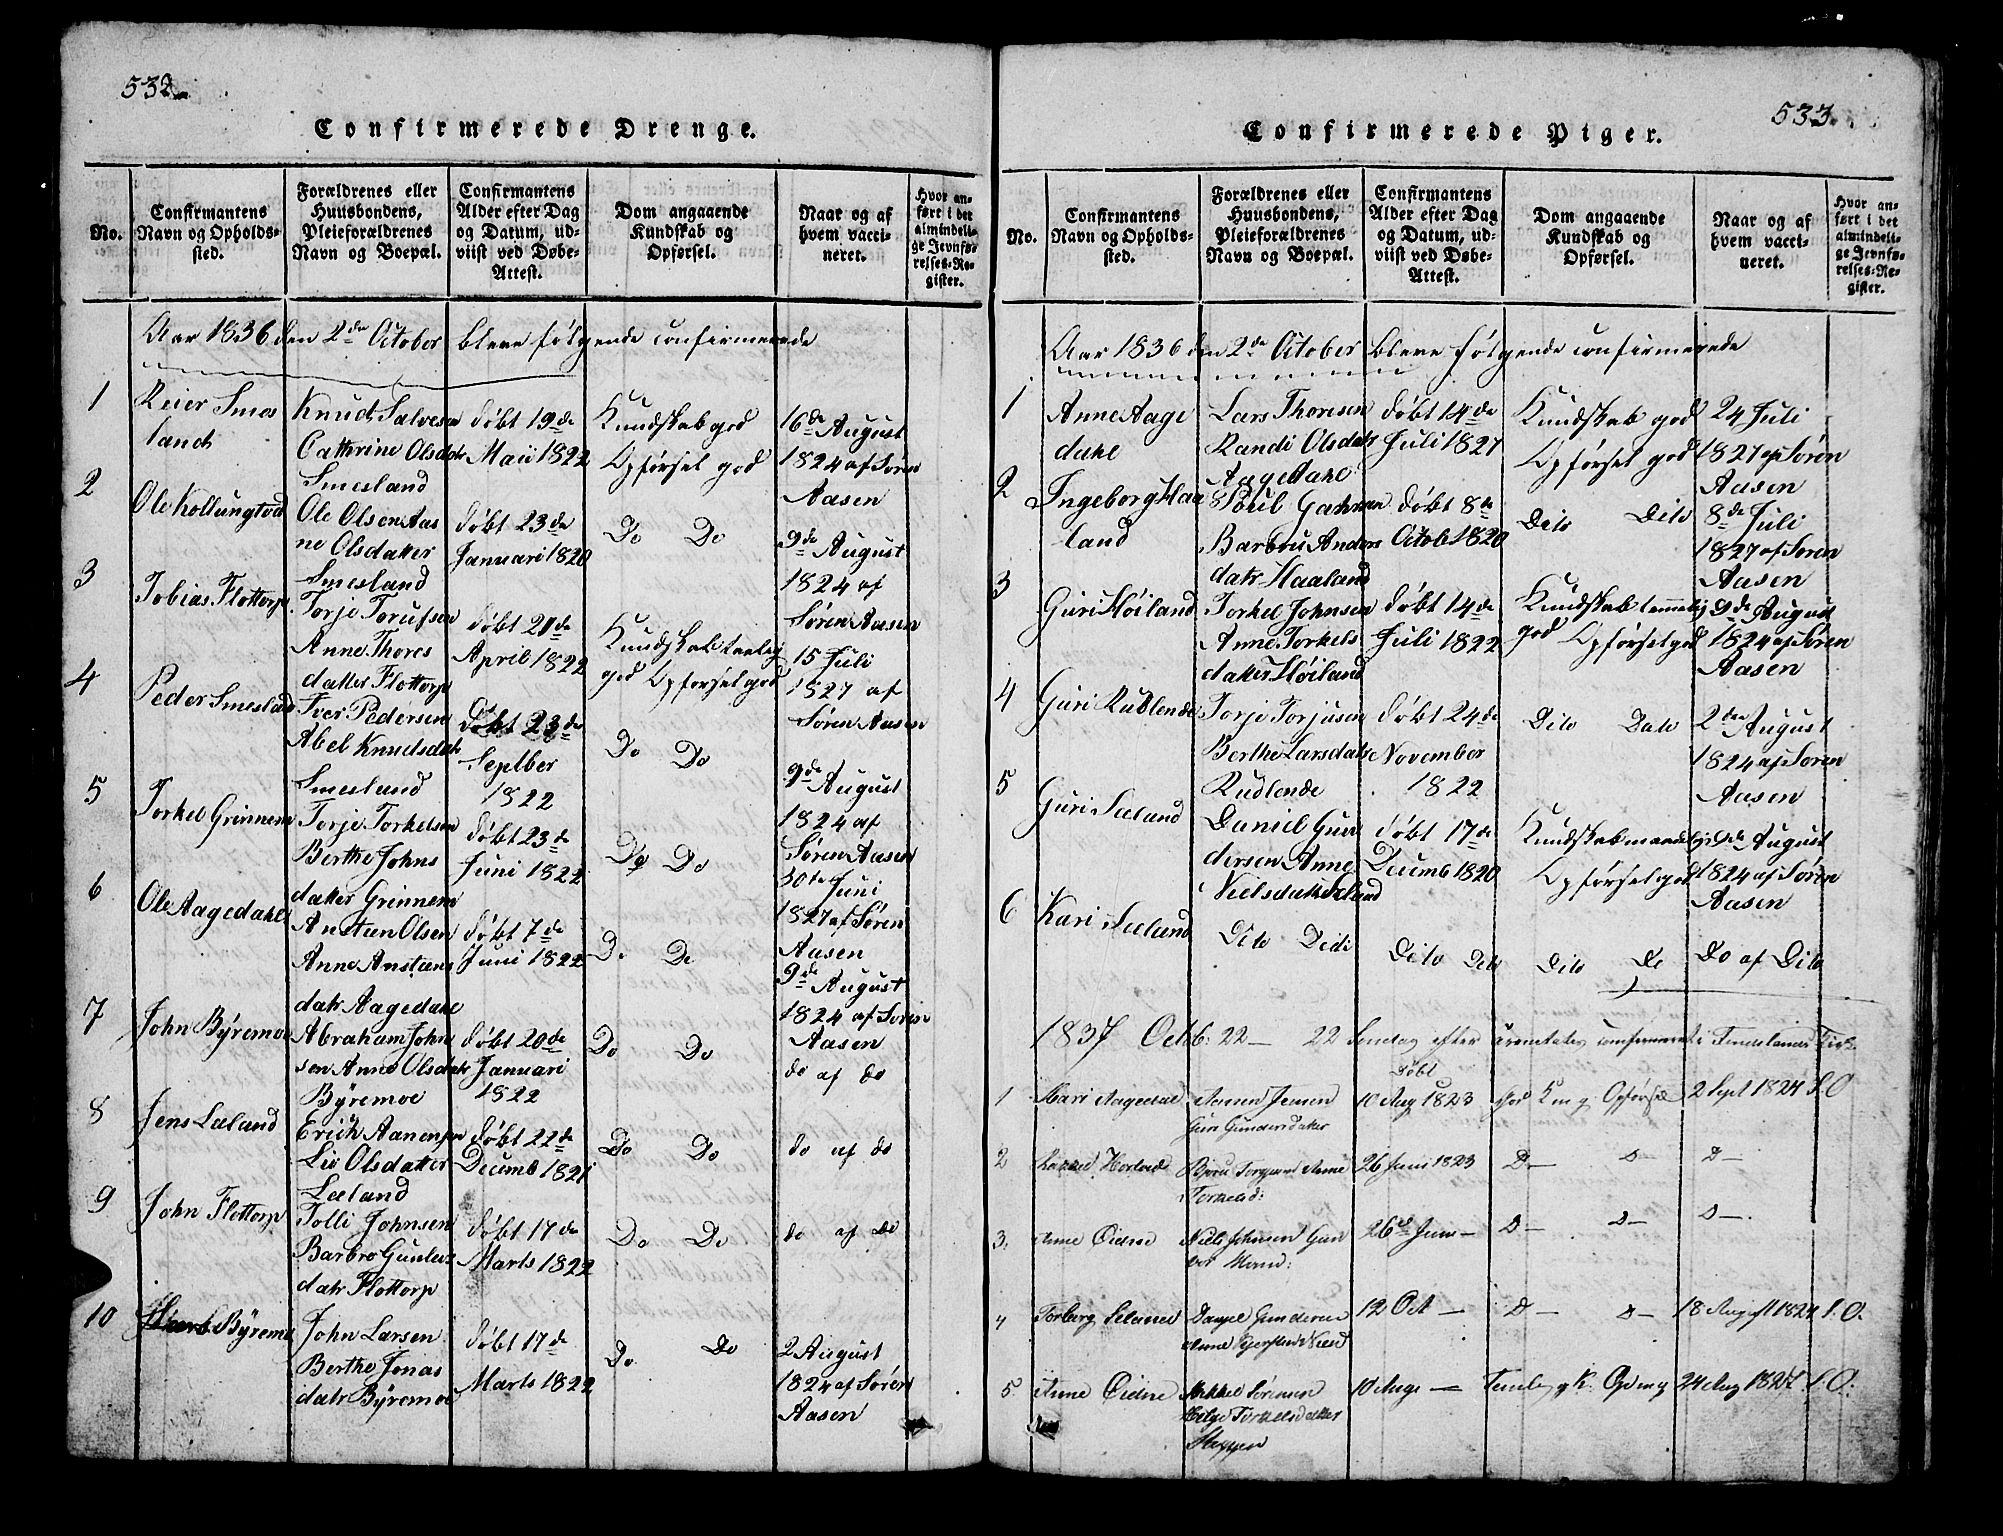 532
Confirmerede Drenge.
No.
Confirmantens
Navn og Opholds-
sted.
Forældrenes eller
Huusbondens,
Pleieforældrenes
Navn og Boepæl.
Confirmantens
Alder efter Dag
og Datum, ud-
viist ved Døbe-
Attest.
Dom angaaende
Kundskab og
Opførsel.
Naar og af
hvem vacci-
neret.
Hvor an-
ført i det
almindeli-
ge Jevnfø-
relses-Re-
gister.
Aar 1836 den 2de October bleve følgende confirmerede
1
Reier Smes
land
Knud Salvesen
Cathrine Olsdatr
Smesland
døbt 19de
Maii 1822
Kundskab god
Opførsel god
16de August
1824 af Søren
Aasen
2
Ole Kollungtvd
Ole Olsen Aas
ne Olsdatter
Smesland
døbt 23de
Januari 1820
Do Do
9de August
1824 af
Søren Aasen
3
Tobias Flottorp
Torje Torufsen
Anne Thores
datter Flottorp
døbt 21de
April 1822
Kundskab taalig
god Opførsel god
15 Juli
1827 af
Søren Aasen
4
Peder Smesland
Iver Pedersen
Abel Knudsdatr
Smesland
døbt 23de
Septber
1822
Do Do
9de August
1824 af
Søren Aasen
5
Torkel Grinnem
Torje Torkelsen
Berthe Johns
datter Grinnem
døbt 23de
Juni 1822
Do Do
30te Juni
1827 af Søren
Aasen
6
Ole Aagedahl
Ansteen Olsen
Anne Anstens
datr Aagedahl
døbt 7de
Juni 1822
Do Do
9de August
1824 af Søren
Aasen
7
John Byremoe
Abraham John
sen Anne Olsdatr
Byremoe
døbt 20de
Januari
1822
Do Do
do af do
8
Jens Leland
Erich Aanensen
Liv Olsdatter
Leland
døbt 22de
Decemb 1821
Do Do
do af do
9
John Flottorp
Tolli Johnsen
Barbro Gunles
datr Flottorp
døbt 17de
Marts 1822
Do Do
do af do
10
Byremoe
John Larsen
Berthe Jonas
datr Byremoe
døbt 17de
Marts 1822
Do Do
2 August
1824 af Søren
Aasen
533
Confirmerede Piger.
No.
Confirmantens
Navn og Opholds-
sted.
Forældrenes eller
Huusbondens,
Pleieforældrenes
Navn og Boepæl.
Confirmantens
Alder efter Dag
og Datum, ud-
viist ved Døbe-
Attest.
Dom angaaende
Kundskab og
Opførsel.
Naar og af
hvem vacci-
neret.
Hvor an-
ført i det
almindeli-
ge Jevnfø-
relses-Re-
gister.
Aar 1836 den 2de October bleve følgende confirmerede
1
Anne Aage
dahl
Lars Thoresen
Randi Olsdatr
Aagedahl
døbt 14de
Juli 1827
Kundskab god
Opførsel god
24 Juli
1827 af Søren
Aasen
2
Ingeborg Haa
land
Poul
Barbru Anders
datr Haaland
døbt 8de
Octob 1820
Dito Dito
8de Juli
1827 af Søren
Aasen
3
Guri Høiland
Torkel Johnsen
Anne Torkels
datter Høiland
døbt 14de
Juli 1822
Kundskab temmelig
god Opførsel god
9de August
1824 af Søren
Aasen
4
Guri Rudlende
Torje Torjusen
Berthe Larsdatr
Rudlende
døbt 24de
November
1822
Dito Dato
2den August
1824 af Søren
Aasen
5
Guri Seland
Daniel Gun
dersen Anne
Nielsdatr Seland
døbt 17de
Decemb 1820
Kundskab maadelig
Opførsel god
9de August
1824 af Søren
Aasen
6
Kari Seland
Dito Dido
Dito Dito
Dito Do
Do af Dito
1837 Octb: 22 — 22 Søndag efter confirmeret i Kirk
Døbt
1
Mari Aagedal
Jensen
Guri Gundersdatter
10 Aug 1823
god K m g Opførsel
2 Sept 1824 S.O
2
Anne
Torkelsd:
26 Juni 1823
D — D —
D —
3.
Anne Øidne
Niels Johnsen Gun
vor
26de Juni —
D — D —
D —.
4
Torberg Seland
Daniel Gundersen
Anne
12 Oct —
D — D —
18 August 1824 S.O.
5.
Anne Øidne
Mikkel Sørensen
Helge Torkelsdatter
10 Aug —
24 Aug 1824 S.O: